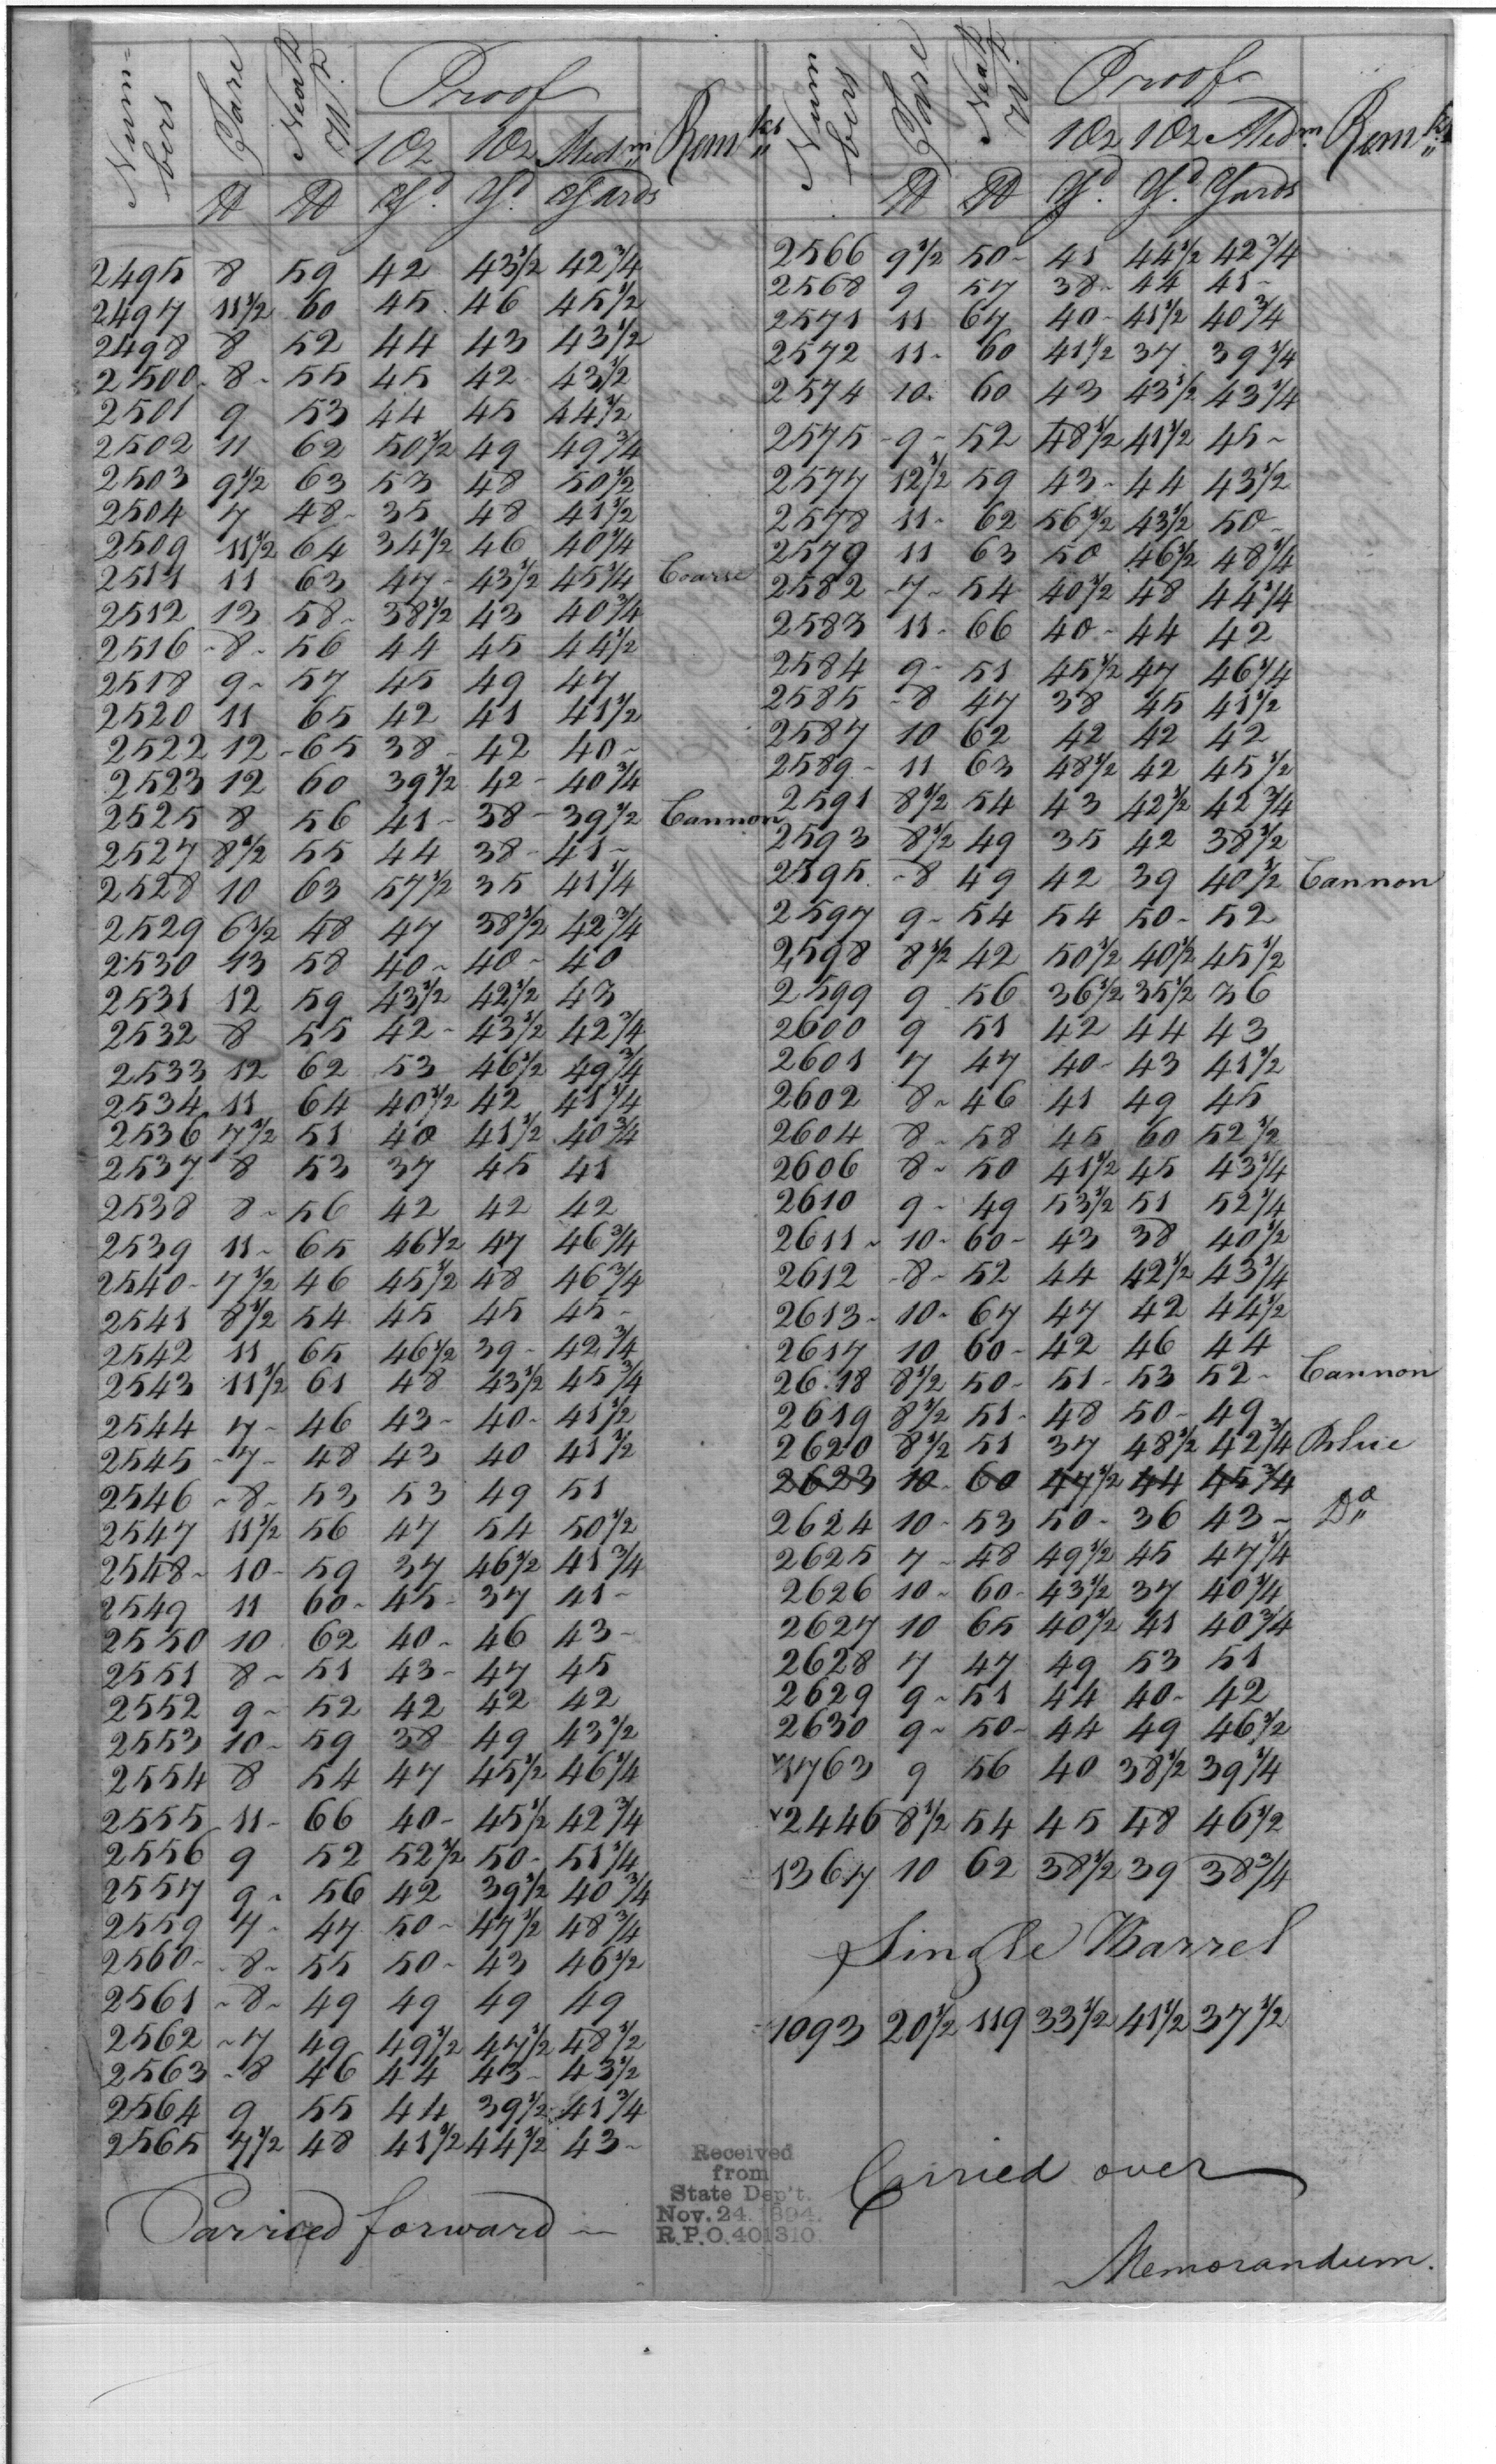 Num-bers Tare Neat Wt. Proof Remks
1 Oz 1 Oz Medm
lb lb Yd. Yd. Yards
2495 8 59 42 43 1/2 42 3/4
2497 11 1/2 60 45 46 45 1/2
2498 8 52 44 43 43 1/2
2500 - 8 - 55 45 42 43 1/2
2501 9 53 44 45 44 1/2
2502 11 62 50 1/2 49 49 3/4
2503 9 1/2 63 53 48 50 1/2
2504 7 48 - 35 48 41 1/2
2509 11 1/2 64 34 1/2 46 40 1/4
2511 11 63 47 - 43 1/2 45 1/4 Coarse
2512 13 58 - 38 1/2 43 40 3/4
2516 - 8 - 56 44 45 44 1/2
2518 9 - 57 45 49 47
2520 11 65 42 41 41 1/2
2522 12 - 65 38 - 42 40 -
2523 12 60 39 1/2 42 - 40 3/4
2525 8 56 41 - 38 - 39 1/2 Cannon
2527 8 1/2 55 44 38 - 41 -
2528 10 63 57 1/2 35 41 1/4
2529 6 1/2 48 47 38 1/2 42 3/4
2530 13 58 40 - 40 - 40
2531 12 59 43 1/2 42 1/2 43
2532 8 55 42 - 43 1/2 42 3/4
2533 12 62 53 46 1/2 49 3/4
2534 11 64 40 1/2 42 41 1/4
2536 7 1/2 51 40 41 1/2 40 3/4
2537 8 53 37 45 41
2538 8 - 56 42 42 42
2539 11 - 65 46 1/2 47 46 3/4
2540 - 7 1/2 46 45 1/2 48 46 3/4
2541 8 1/2 54 45 45 45 -
2542 11 65 46 1/2 39 - 42 3/4
2543 11 1/2 61 48 43 1/2 45 3/4
2544 7 - 46 43 - 40 - 41 1/2
2545 - 7 - 48 43 40 41 1/2
2546 - 8 - 53 53 49 51
2547 11 1/2 56 47 54 50 1/2
2548 - 10 - 59 37 46 1/2 41 3/4
2549 11 60 - 45 - 37 41 -
2550 10 62 40 - 46 43 -
2551 8 - 51 43 - 47 45
2552 9 - 52 42 42 42
2553 10 - 59 38 49 43 1/2
2554 8 54 47 45 1/2 46 1/4
2555 11 - 66 40 - 45 1/2 42 3/4
2556 9 52 52 1/2 50 - 51 1/4
2557 9 - 56 42 39 1/2 40 3/4
2559 7 - 47 50 - 47 1/2 48 3/4
2560 - 8 - 55 50 - 43 46 1/2
2561 - 8 - 49 49 49 49
2562 - 7 49 49 1/2 47 1/2 48 1/2
2563 - 8 46 44 43 - 43 1/2
2564 9 55 44 39 1/2 41 3/4
2565 7 1/2 48 41 1/2 44 1/2 43 -
Carried forward
Num bers Tare Neat Wt. Proof Remks
1 Oz 1 Oz Medm
lb lb Yd. Yd. Yards
2566 9 1/2 50 - 41 44 1/2 42 3/4
2568 9 57 38 - 44 41 -
2571 11 67 40 - 41 1/2 40 3/4
2572 11 - 60 41 1/2 37 39 1/4
2574 10 60 43 43 1/2 43 1/4
2575 - 9 - 52 48 1/2 41 1/2 45 -
2577 12 1/2 59 43 - 44 43 1/2
2578 11 - 62 56 1/2 43 1/2 50 -
2579 11 63 50 46 1/2 48 1/4
2582 - 7 - 54 40 1/2 48 44 1/4
2583 11 - 66 40 - 44 42
2584 9 - 51 45 1/2 47 46 1/4
2585 - 8 47 38 45 41 1/2
2587 10 62 42 42 42
2589 - 11 63 48 1/2 42 45 1/2
2591 8 1/2 54 43 42 1/2 42 3/4
2593 8 1/2 49 35 42 38 1/2
2595 - 8 49 42 39 40 1/2 Cannon
2597 9 - 54 54 50 - 52
2598 8 1/2 42 50 1/2 40 1/2 45 1/2
2599 9 56 36 1/2 35 1/2 36
2600 9 51 42 44 43
2601 7 47 40 - 43 41 1/2
2602 8 - 46 41 49 45
2604 8 - 58 45 60 52 1/2
2606 8 - 50 41 1/2 45 43 1/4
2610 9 - 49 53 1/2 51 52 1/4
2611 - 10 - 60 - 43 38 40 1/2
2612 - 8 - 52 44 42 1/2 43 1/4
2613 - 10 - 67 47 42 44 1/2
2617 10 60 - 42 46 44
2618 8 1/2 50 - 51 - 53 52 - Cannon
2619 8 1/2 51 - 48 50 - 49
2620 8 1/2 51 37 48 1/2 42 3/4 Blue
2623 10 60 47 1/2 44 45 3/4
2624 10 - 53 50 - 36 43 - Do
2625 7 - 48 49 1/2 45 47 1/4
2626 10 - 60 - 43 1/2 37 40 1/4
2627 10 65 40 1/2 41 40 3/4
2628 7 47 49 53 51
2629 9 - 51 44 40 - 42
2630 9 - 50 - 44 49 46 1/2
1763 9 56 40 38 1/2 39 1/4
2446 8 1/2 54 45 48 46 1/2
1367 10 62 38 1/2 39 38 3/4
Single Barrel
1093 20 1/2 119 33 1/2 41 1/2 37 1/2
Carried over
Memorandum.
Received
from
State Dep't.
Nov. 24. 1894.
R.P.O. 401310.